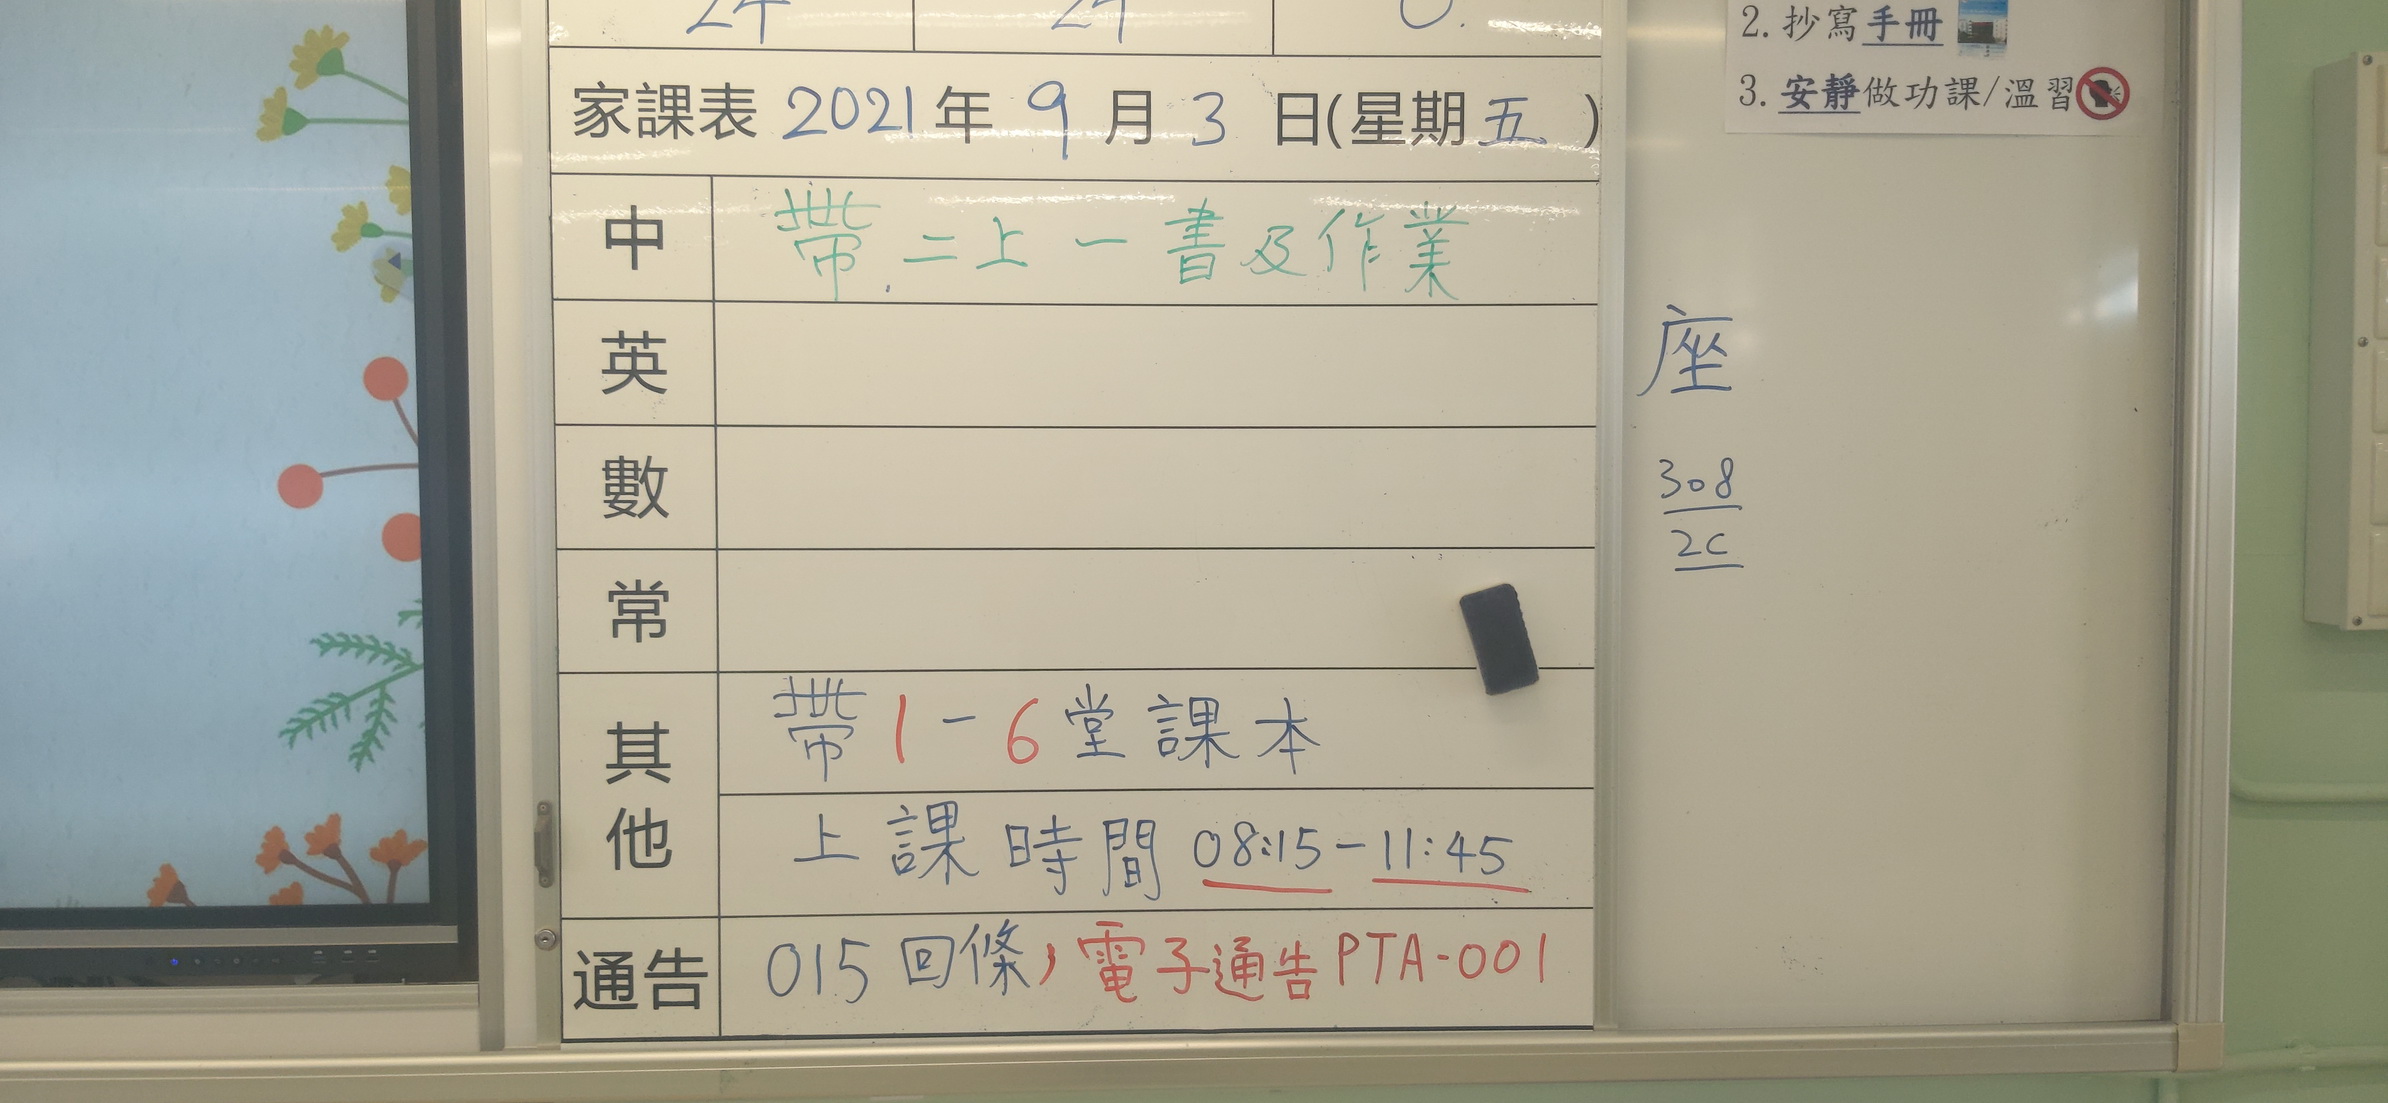 24 24 0.
家課表 2021年 9月 3 日(星期五)
中 帶二上一書及作業
英
數
常
其他 帶1-6堂課本
上課時間 08:15-11:45
通告 015回條，電子通告PTA-001
2. 抄寫手冊
3. 安靜做功課/溫習
座
308
2C